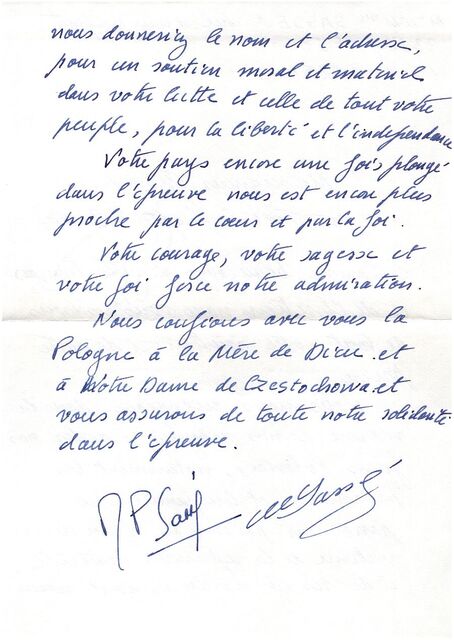 nous donneriez le nom et l'adresse,
pour un soutien moral et matériel
dans votre lutte et celle de tout votre
peuple, pour la liberté et l'indépendance
Votre pays encore une fois plongé
dans l'épreuve nous est encore plus
proche par le cœur et par la foi.
Votre courage, votre sagesse et
votre foi force notre admiration.
Nous confions avec vous la
Pologne à la Mère de Dieu et
à Notre Dame de Czestochowa et
vous assurons de toute notre solidarité
dans l'épreuve.